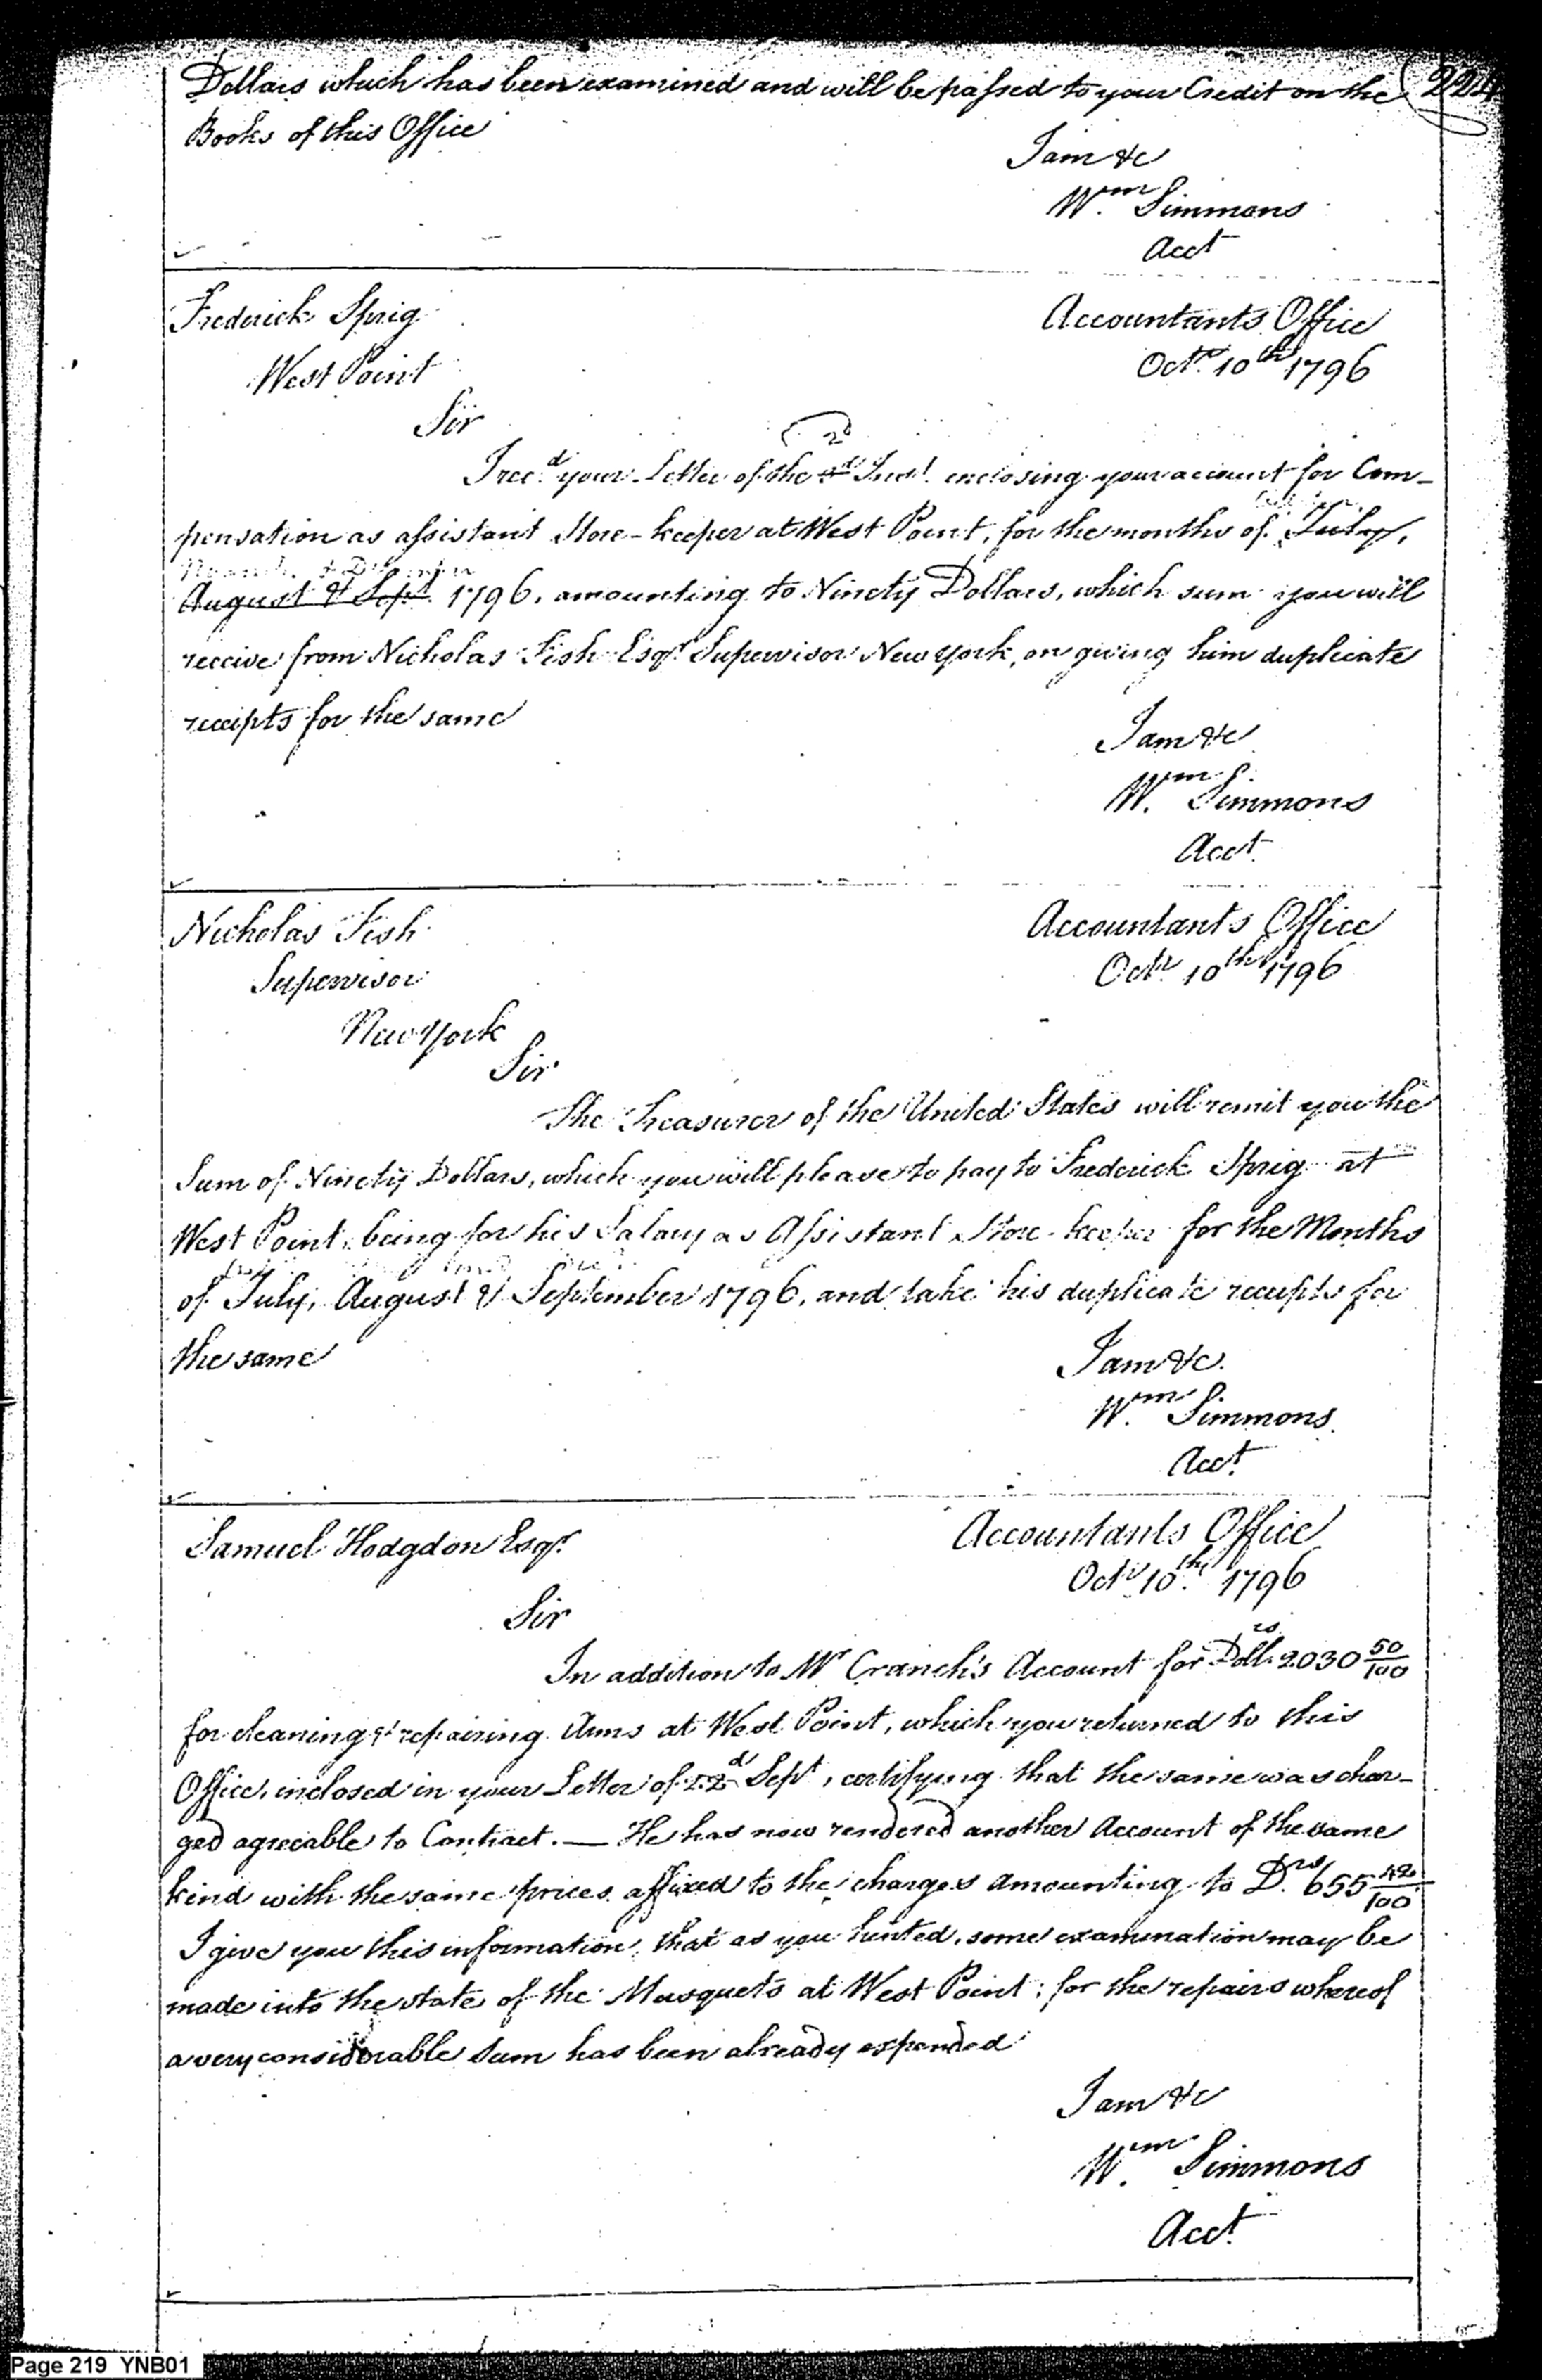 Dollars which has been examined and will be passed to your Credit on the
Books of this Office
I am &c
Wm. Simmons
Acct
Frederick Sprig
Accountants Office
West Point
Octr. 10th 1796
Sir
2d
I recd. your Letter of the Inst. enclosing your account for Com-
pensation as assistant Store-keeper at West Point, for the months of July,
August & Sept. 1796, amounting to Ninety Dollars, which sum you will
receive from Nicholas Fish Esqr. Supervisor New york, on giving him duplicate
receipts for the same
I am &c
Wm. Simmons
Acct.
Nicholas Fish
Accountants Office
Supervisor
Octr. 10th 1796
New York
Sir
The Treasurer of the United States will remit you the
Sum of Ninety Dollars, which you will please to pay to Frederick Sprig at
West Point, being for his Salary as Assistant Store-keeper for the Months
of July, August & September 1796, and take his duplicate receipts for
the same
I am &c.
Wm. Simmons.
Acct.
Samuel Hodgdon Esqr.
Accountants Office
Octr. 10th. 1796
Sir
In addition to Mr Cranch's Account for Dollrs. 2030 50/100
for cleaning & repairing Arms at West Point, which you returned to this
Office, inclosed in your Letter of 22d Sept, certifying that the same was char-
ged agreeable to Contract. — He has now rendered another Account of the same
kind with the same prices affixed to the charges amounting to Drs. 655 42/100
I give you this information, that as you hinted, some examination may be
made into the state of the Musquets at West Point; for the repairs whereof
a very considerable Sum has been already expended
I am &c
Wm. Simmons
Acct.
Page 219 YNB01